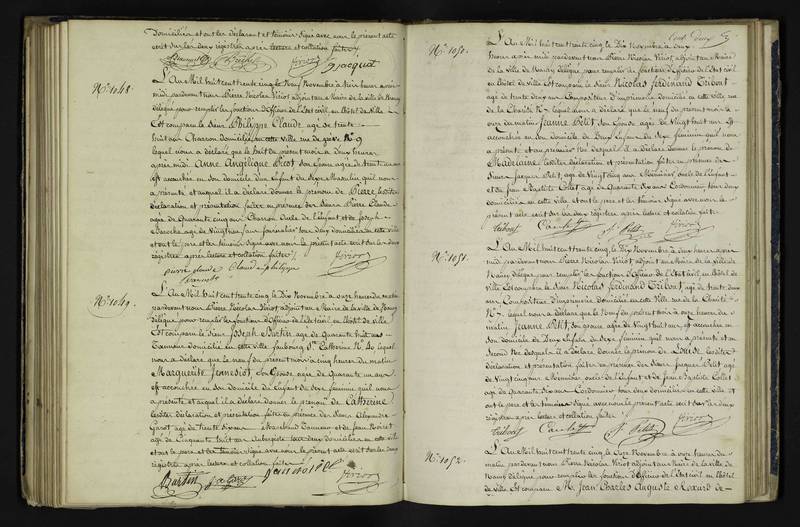 Domiciliés et ont les déclarant et témoins signé avec nous le présent acte
écrit sur les deux registres après lecture et collation faites
Jacquot
N.° 1048.
L'An Mil huit cent trente cinq le Neuf Novembre à trois heures après
midi pardevant nous Pierre Nicolas Viriot adjoint au Maire de la ville de Nancy
délégué pour remplir les fonctions d'Officier de l'Etat civil, en l'hôtel de Ville
Est comparu le Sieur Philippe Claude agé de trente
huit ans Charron domicilié en cette ville rue de grève N.° 9
lequel nous a déclaré que le huit du présent mois à deux heures
après midi Anne Angélique Picot son Epouse agée de trente un ans
est accouchée en son domicile d'un Enfant du sexe Masculin qu'il nous
a présenté et auquel il a déclaré donner le prénom de Pierre, lesdites
déclaration et présentation faites en présence des Sieurs Pierre Claude
agé de quarante cinq ans Charron Oncle de l'Enfant et de Joseph
agé de vingt neuf ans journalier tous deux domiciliés en cette ville
et ont le père et les témoins signé avec nous le présent acte écrit sur les deux
registres après lecture et collation faites
pierre claude Claude philippe Viriot
N.° 1049.
L'An Mil huit cent trente cinq le Dix Novembre à onze heures du matin
pardevant nous Pierre Nicolas Viriot adjoint au Maire de la ville de Nancy
délégué pour remplir les fonctions d'Officier de l'Etat civil en l'hôtel de ville
Est comparu le Sieur Joseph Burtin agé de Quarante huit ans
Tanneur domicilié en cette ville faubourg S.te Catherine N.° 40 lequel
nous a déclaré que le neuf du présent mois à cinq heures du matin
Marguerite Jennesiot son Epouse agée de Quarante un ans
est accouchée en son domicile d'un Enfant du sexe féminin qu'il nous
a présenté et auquel il a déclaré donner le prénom de Catherine
lesdites déclaration et présentation faites en présence des Sieurs Alexandre
agé de trente six ans Marchand Tanneur et de Jean
agé de Cinquante huit ans Aubergiste tous deux domiciliés en cette ville
et ont le père et les témoins signé avec nous le présent acte écrit sur les deux
registres après lecture et collation faites
Burtin Viriot
Cent deux
N.° 1050.
L'An Mil huit cent trente cinq le Dix Novembre à deux
heures après midi pardevant nous Pierre Nicolas Viriot, adjoint au Maire
de la Ville de Nancy délégué pour remplir les fonctions d'Officier de l'Etat civil
en l'hôtel de Ville Est comparu le Sieur Nicolas Ferdinand Tribout
agé de trente deux ans Compositeur d'imprimerie domicilié en cette ville rue
de la Charité N.° 7 lequel nous a déclaré que le neuf du présent mois à
onze du matin Jeanne Petit, son Epouse agée de vingt huit ans est
accouchée en son domicile de Deux Enfans du sexe féminin qu'il nous
a présenté et au premier né desquels il a déclaré donner le prénom de
Madelaine lesdites déclaration et présentation faites en présence des
Sieurs Jacques Petit, agé de vingt cinq ans Menuisier oncle de l'Enfant
et de Jean Baptiste Collet agé de Quarante six ans Cordonnier tous deux
domiciliés en cette ville et ont le père et les témoins signé avec nous le
présent acte écrit sur les deux registres après lecture et collation faites
Tribout Petit Viriot
N.° 1051.
L'An Mil huit cent trente cinq le Dix Novembre à deux heures après
midi pardevant nous Pierre Nicolas Viriot, adjoint au Maire de la Ville de
Nancy, délégué pour remplir les fonctions d'Officier de l'Etat civil, en l'hôtel de
Ville Est comparu le Sieur Nicolas Ferdinand Tribout agé de trente deux
ans Compositeur d'imprimerie domicilié en cette Ville rue de la Charité
N.° 7. lequel nous a déclaré que le Neuf du présent mois à onze heures du
matin Jeanne Petit, son Epouse agée de Vingt huit ans, est accouchée en
son domicile de Deux Enfans du sexe féminin qu'il nous a présenté et au
second né desquels il a déclaré donner le prénom de lesdites
déclaration et présentation faites en présence des Sieurs Jacques Petit agé
de vingt cinq ans Menuisier oncle de l'Enfant et de Jean Baptiste Collet
agé de Quarante six ans Cordonnier tous deux domiciliés en cette ville et
ont le père et les témoins signé avec nous le présent acte écrit sur les deux
registres après lecture et collation faites
Tribout Petit Viriot
N.° 1052.
L'An Mil huit cent trente cinq le Onze Novembre à onze heures du
matin pardevant nous Pierre Nicolas Viriot adjoint au Maire de la ville de
Nancy délégué pour remplir les fonctions d'Officier de l'Etat civil en l'hôtel
de ville Est comparu M. Jean Charles Auguste de